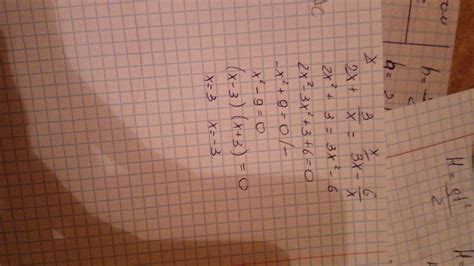 2x + 3/x = 3x - 6/x
2x² + 3 = 3x² - 6
2x² - 3x² + 3 + 6 = 0
-x² + 9 = 0 /-
x² - 9 = 0
(x-3) (x+3) = 0
x = 3 x = -3